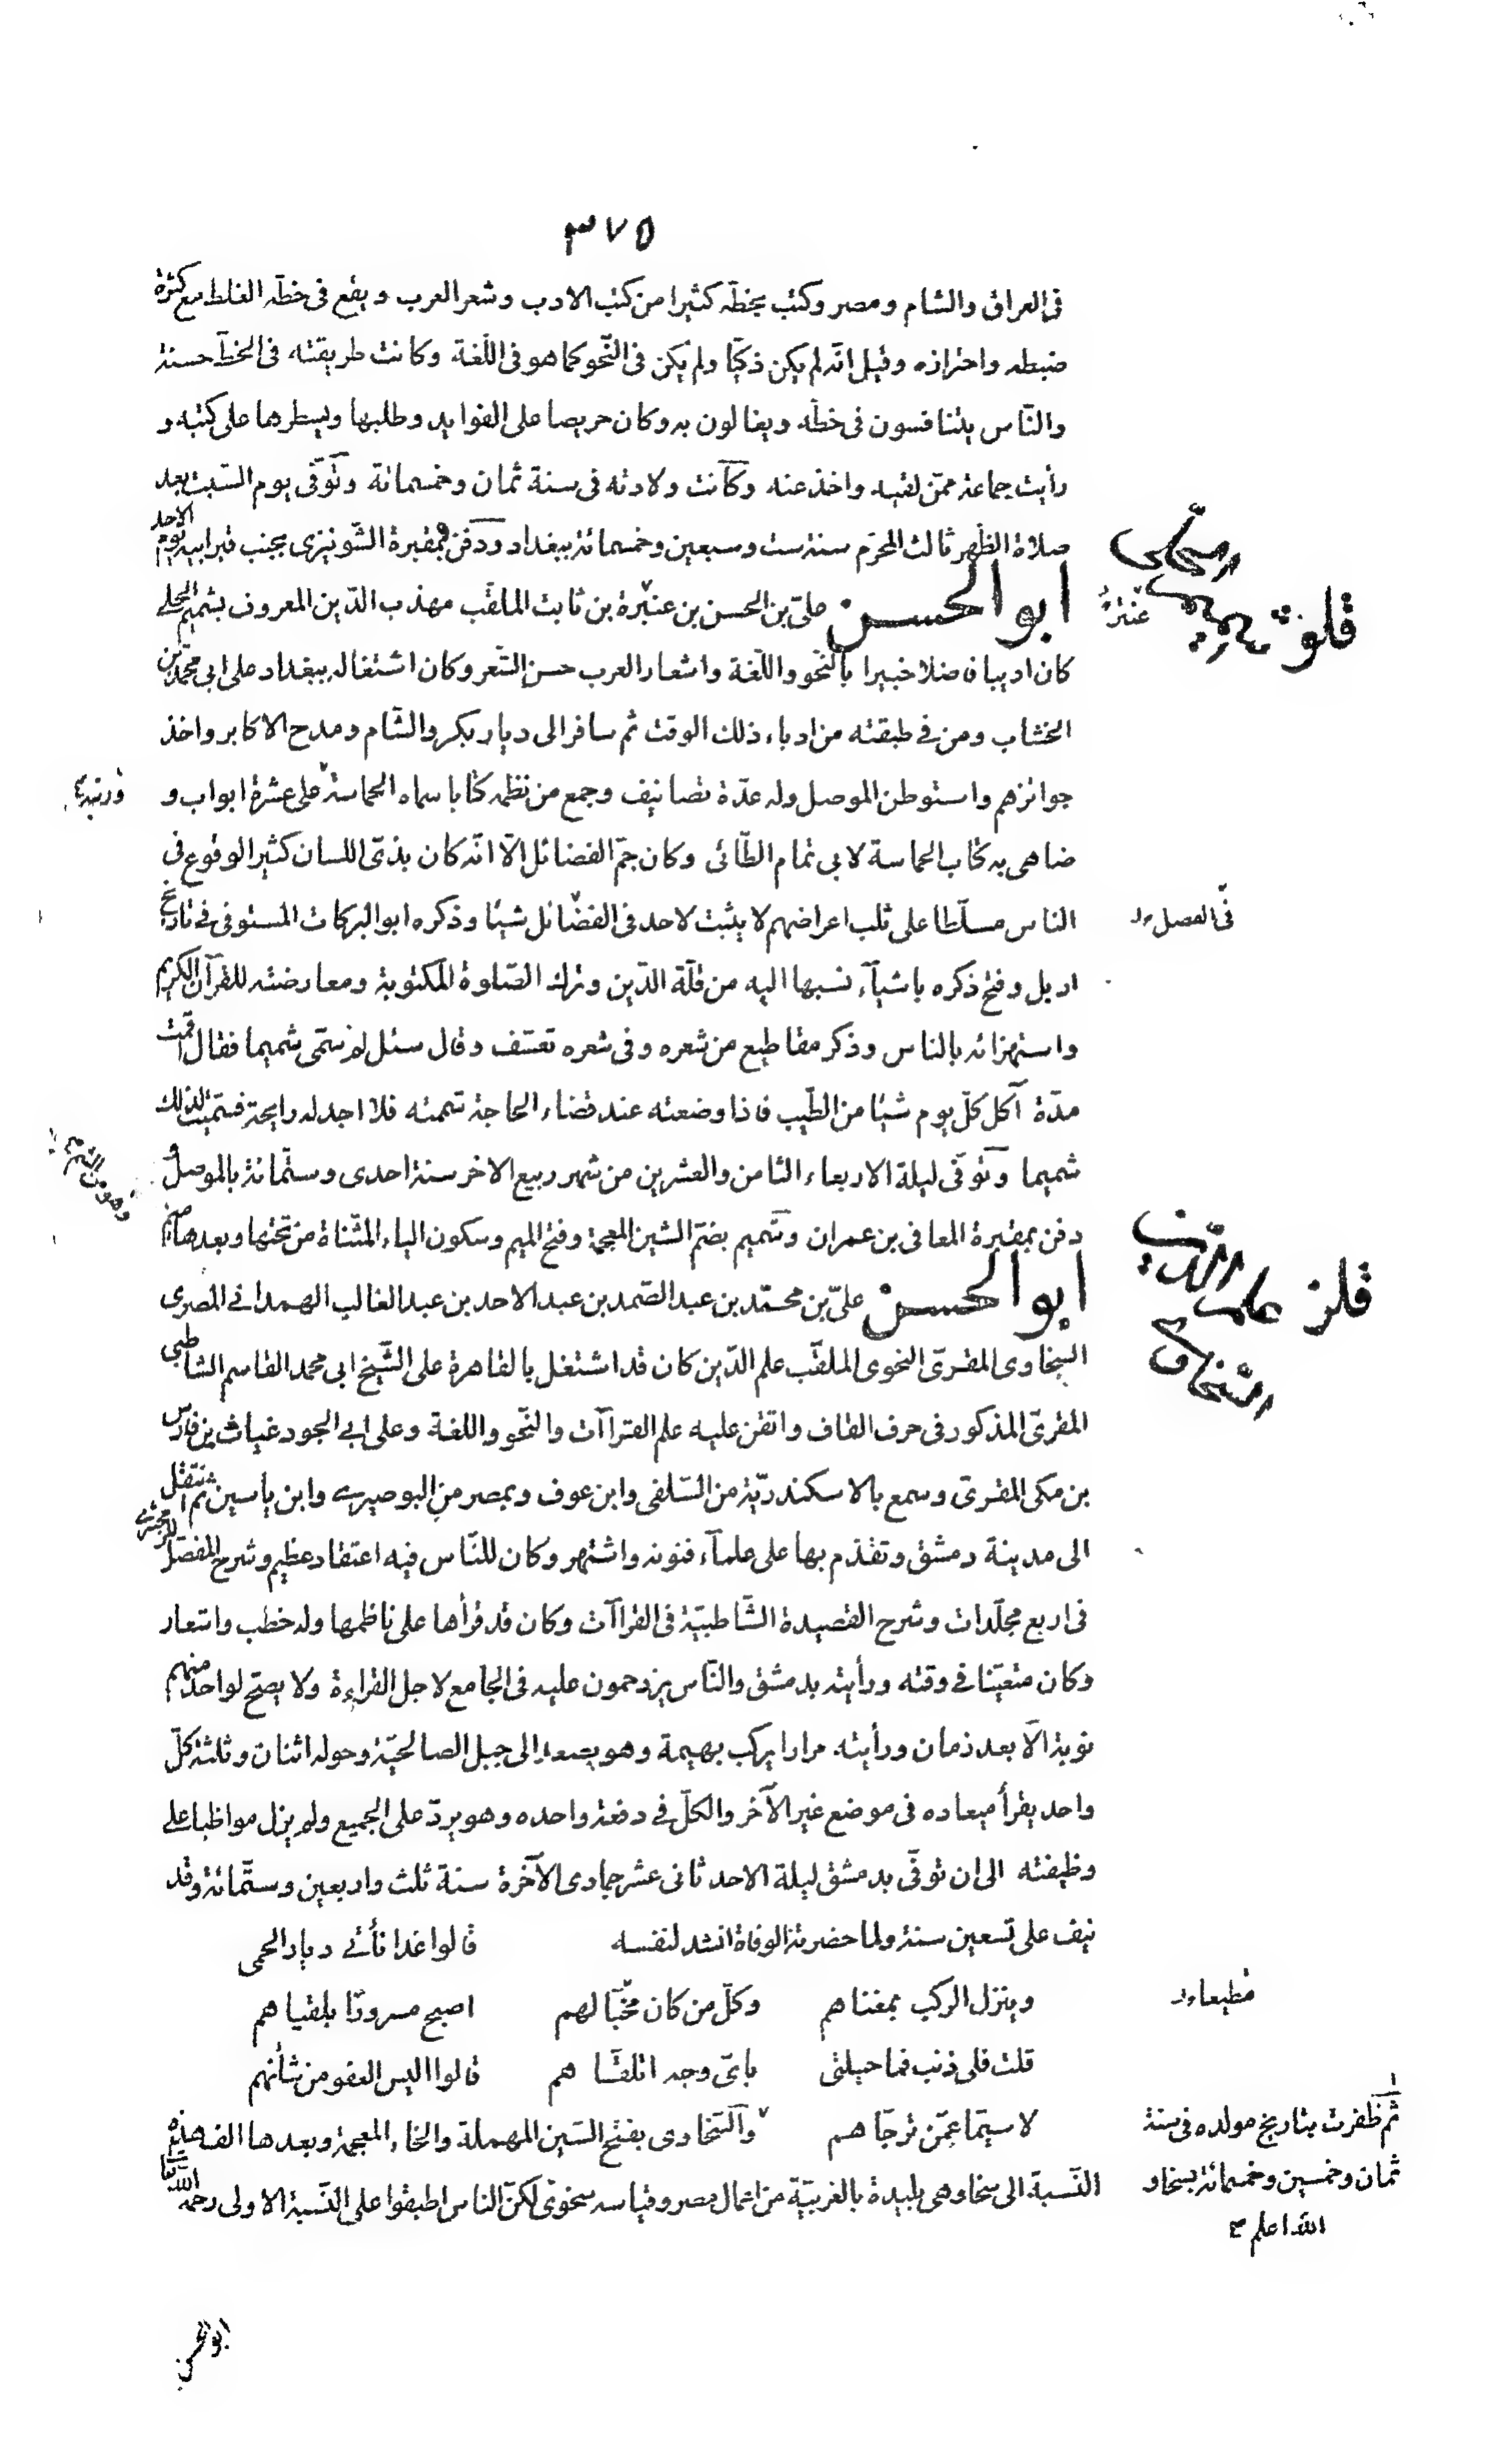 ٣٧٥
فى العراق والشام ومصر وكتب بخطه كثيرا من كتب الادب وشعر العرب ويقع فى خطه الغلط مع كثرة
ضبطه واحترازه وقيل انّه لم يكن ذكيّا ولم يكن فى النّحو كما هو فى اللّغة وكانت طريقته فى الخطّ حسنة
والنّاس يتنافسون فى خطّه ويغالون به وكان حريصا على الفوايد وطلبها ويسطرها على كتبه و
رأيت جماعة ممّن لقيه واخذ عنه وكانت ولادته فى سنة ثمان وخمسمائة وتوفّى يوم السّبت بعد
صلاة الظّهر ثالث المحرّم سنة ست وسبعين وخمسمائة ببغداد ودفن بمقبرة الشّونيزى بجنب قبر ابيه يوم الاحد
ابو الحسن علىّ بن الحسن بن عنبرة بن ثابت الملقّب مهذب الدّين المعروف بشميم الحلى
كان اديبا فاضلا خبيرا بالنّحو واللّغة واشعار العرب حسن الشّعر وكان اشتغاله ببغداد على ابى محمّد بن
الخشاب ومن فى طبقته من ادباء ذلك الوقت ثم سافر الى ديار بكر والشّام ومدح الاكابر واخذ
جوائزهم واستوطن الموصل وله عدّة تصانيف وجمع من نظمه كتابا سماه الحماسة على عشرة ابواب و
ضاهى به كتاب الحماسة لابى تمام الطّائى وكان جمّ الفضائل الّا انّه كان بذىّ اللسان كثير الوقوع فى
الناس مسلّطا على ثلب اعراضهم لا يثبت لاحد فى الفضائل شيئا وذكره ابو البركات المستوفى فى تاريخ
اربل وفتح ذكره باشيآء نسبها اليه من قلّة الدّين وترك الصّلوة المكتوبة ومعارضته للقرآن الكريم
واستهزائه بالناس وذكر مقاطيع من شعره وفى شعره تعسّف وقال سئل لم سمّى شميما فقال اقمت
مدّة آكل كلّ يوم شيئا من الطّيب فاذا وضعته عند قضاء الحاجة شممته فلا اجد له رايحة فسمّيت لذلك
شميما وتوفّى ليلة الاربعاء الثامن والعشرين من شهر ربيع الاخر سنة احدى وستّمائة بالموصل و
دفن بمقبرة المعافى بن عمران وشميم بضمّ الشين المعجمة وفتح الميم وسكون الياء المثّناة من تحتها وبعدها ميم
ابو الحسن علىّ بن محمّد بن عبد الصّمد بن عبد الاحد بن عبد الغالب الهمدانى المصرى
السخاوى المقرىّ النحوى الملقّب علم الدّين كان قد اشتغل بالقاهرة على الشّيخ ابى محمد القاسم الشاطبى
المقرىّ المذكور فى حرف القاف واتقن عليه علم القراآت والنّحو واللغة وعلى ابى الجود غياث بن فارس
بن مكى المقرىّ وسمع بالاسكندريّة من السّلفى وابن عوف وبمصر من البوصيرى وابن ياسين ثم انتقل
الى مدينة دمشق وتقدّم بها على علمآء فنونه واشتهر وكان للنّاس فيه اعتقاد عظيم وشرح المفصّل للزمخشرى
فى اربع مجلّدات وشرح القصيدة الشّاطبيّة فى القراآت وكان قد قرأها على ناظمها وله خطب واشعار
وكان متعيّنا فى وقته ورأيته بدمشق والنّاس يزدحمون عليه فى الجامع لاجل القراءة ولا يصحّ لواحد منهم
نوبة الّا بعد زمان ورأيته مرارا يركب بهيمة وهو يصعد الى جبل الصالحيّة وحوله اثنان وثلثة كلّ
واحد يقرأ ميعاده فى موضع غير الآخر والكلّ فى دفعة واحده وهو يردّ على الجميع ولم يزل مواظبا على
وظيفته الى ان توفّى بدمشق ليلة الاحد ثانى عشر جمادى الآخرة سنة ثلث واربعين وستّمائة وقد
نيف على تسعين سنة ولما حضرته الوفاة انشد لنفسه قالوا غدا نأتى ديار الحمى
وينزل الركب بمغناهم وكلّ من كان محبّا لهم اصبح مسرورًا بلقياهم
قلت فلى ذنب فما حيلتى باىّ وجه اتلقّاهم قالوا اليس العفو من شأنهم
لا سيّما عمّن ترجّاهم والسّخاوى بفتح السّين المهملة والخاء المعجمة وبعدها الف هذه
النّسبة الى سخا وهى بليدة بالغربيّة من اعمال مصر وقياسه سخوىّ لكنّ الناس اطبقوا على النّسبة الاولى رحمه الله
قلوز شميم الحلى
عنترة
ورتبه
فى الفصل
قلز علم الدّين السّخاوى
ثم ظفرت بتاريخ مولده فى سنة
ثمان وخمسين وخمسمائة بسخا و
الله اعلم
ابو الحسن